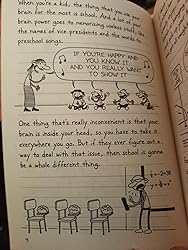 When you're a kid, the thing that you use your
brain for the most is school. And a lot of
brain power goes to memorizing useless stuff, like
the names of vice presidents and the words to
preschool songs.
IF YOU'RE HAPPY AND
YOU KNOW IT
AND YOU REALLY WANT
TO SHOW IT
One thing that's really inconvenient is that your
brain is inside your head, so you have to take it
everywhere you go. But if they ever figure out a
way to deal with that issue, then school is gonna
be a whole different thing.
4